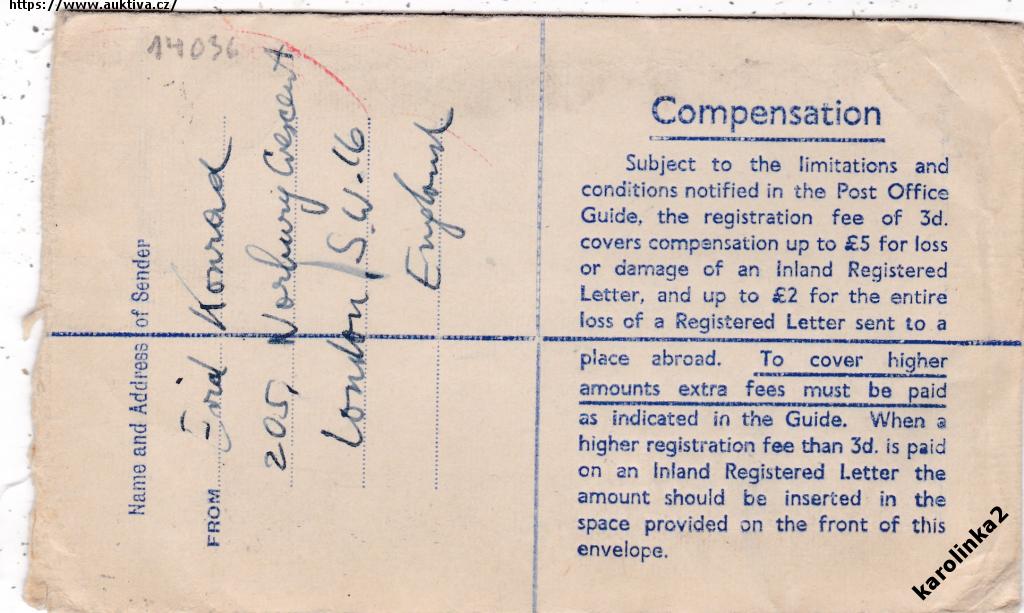 https://www.auktiva.cz/
14036
Name and Address of Sender
FROM Konrad
205, Norbury Crescent
London S.W. 16
England
Compensation
Subject to the limitations and
conditions notified in the Post Office
Guide, the registration fee of 3d.
covers compensation up to £5 for loss
or damage of an Inland Registered
Letter, and up to £2 for the entire
loss of a Registered Letter sent to a
place abroad. To cover higher
amounts extra fees must be paid
as indicated in the Guide. When a
higher registration fee than 3d. is paid
on an Inland Registered Letter the
amount should be inserted in the
space provided on the front of this
envelope.
karolinka2